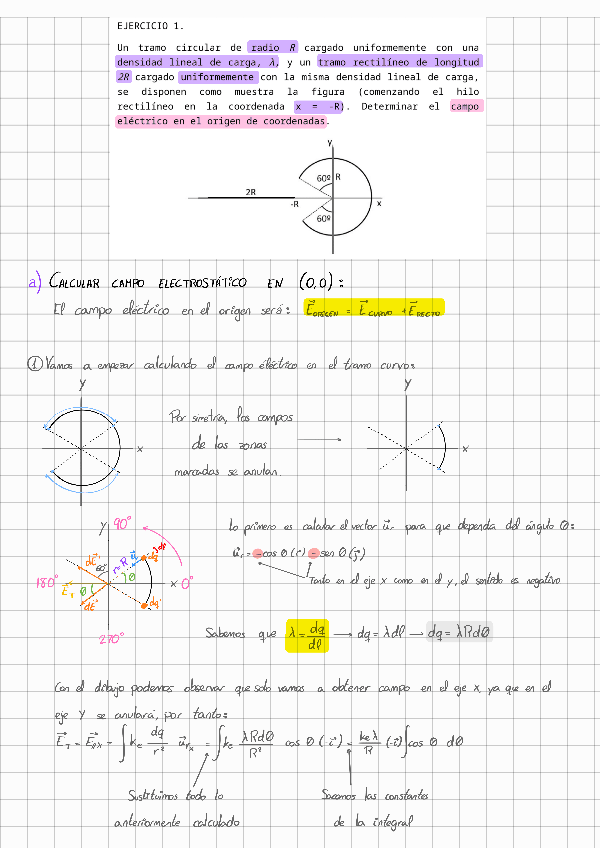 EJERCICIO 1.
Un tramo circular de radio R cargado uniformemente con una
densidad lineal de carga, λ, y un tramo rectilíneo de longitud
2R cargado uniformemente con la misma densidad lineal de carga,
se disponen como muestra la figura (comenzando el hilo
rectilíneo en la coordenada x = -R). Determinar el campo
eléctrico en el origen de coordenadas.
y
60º R
2R
-R
x
60º
a) CALCULAR CAMPO ELECTROSTÁTICO EN (0,0):
El campo eléctrico en el origen será: E⃗ORIGEN = E⃗CURVO + E⃗RECTO
① Vamos a empezar calculando el campo eléctrico en el tramo curvo:
y
y
Por simetría, los campos
de las zonas
marcadas se anulan.
x
x
y 90°
180°
x 0°
270°
dE⃗'
60°
r=R
u⃗
dq
θ
E⃗T
θ
dE⃗
dq'
Lo primero es calcular el vector u⃗r para que dependa del ángulo θ:
u⃗r = -cos θ (i⃗) - sen θ (j⃗)
Tanto en el eje x como en el y, el sentido es negativo
Sabemos que λ = dq/dl → dq = λdl → dq = λRdθ
Con el dibujo podemos observar que solo vamos a obtener campo en el eje x, ya que en el
eje Y se anulará, por tanto:
E⃗T = E⃗RX = ∫ke dq/r² u⃗rx = ∫ke λRdθ/R² cos θ (-i⃗) = keλ/R (-i⃗)∫cos θ dθ
Sustituimos todo lo
anteriormente calculado
Sacamos las constantes
de la integral